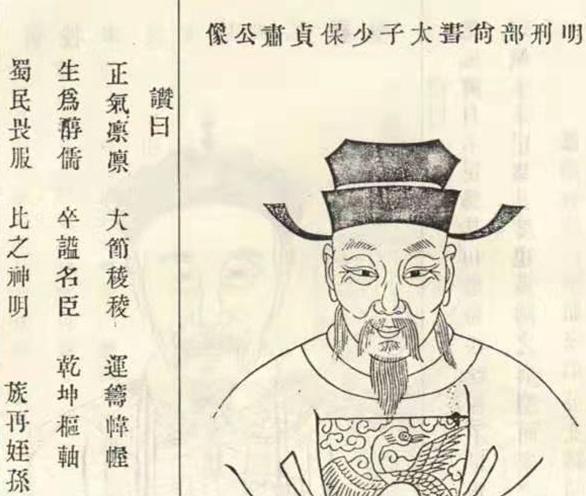 明刑部尙書太子少保貞肅公像
讚曰
正氣凛凛 大節稜稜 運籌幃幄
生爲醇儒 卒謚名臣 乾坤樞軸
蜀民畏服 比之神明 族再姪孫